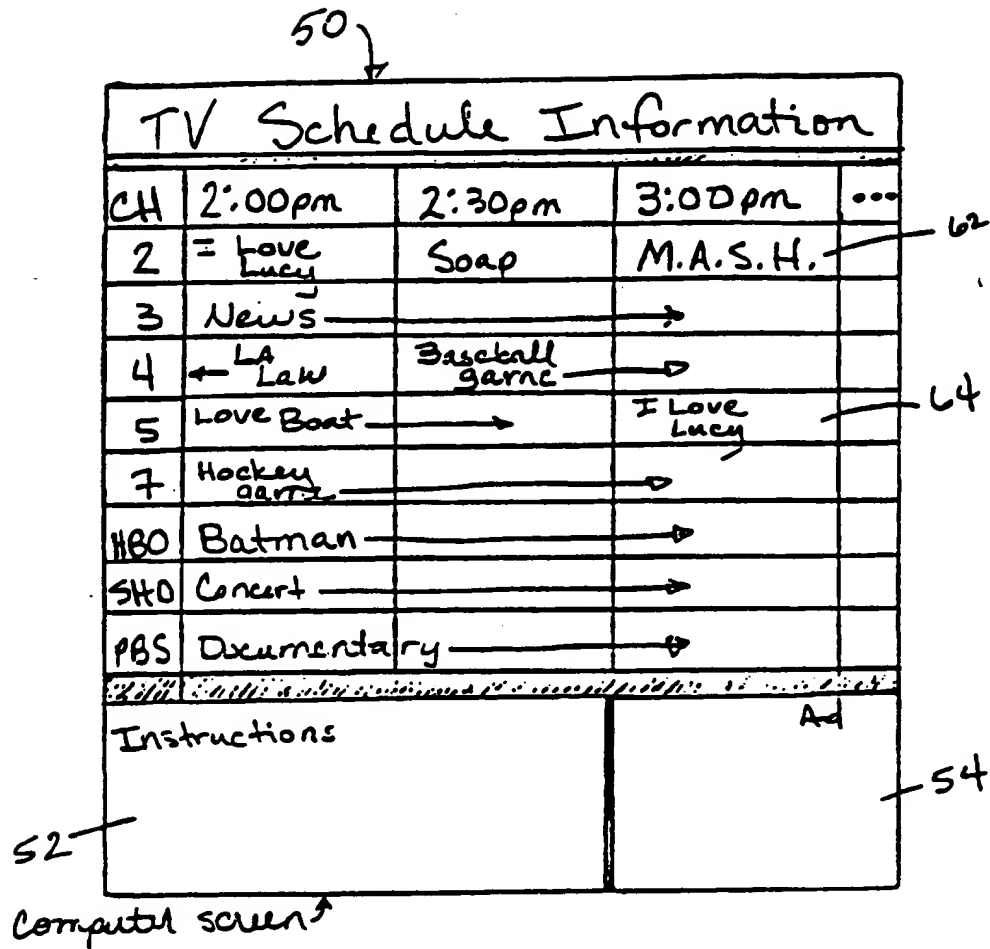 50
TV Schedule Information
CH 2:00pm 2:30pm 3:00pm ...
2 I Love Lucy Soap M.A.S.H. 62
3 News
4 LA Law Baseball game
5 Love Boat I Love Lucy 64
7 Hockey game
HBO Batman
SHO Concert
PBS Documentary
Instructions Ad
54
52
Computer screen